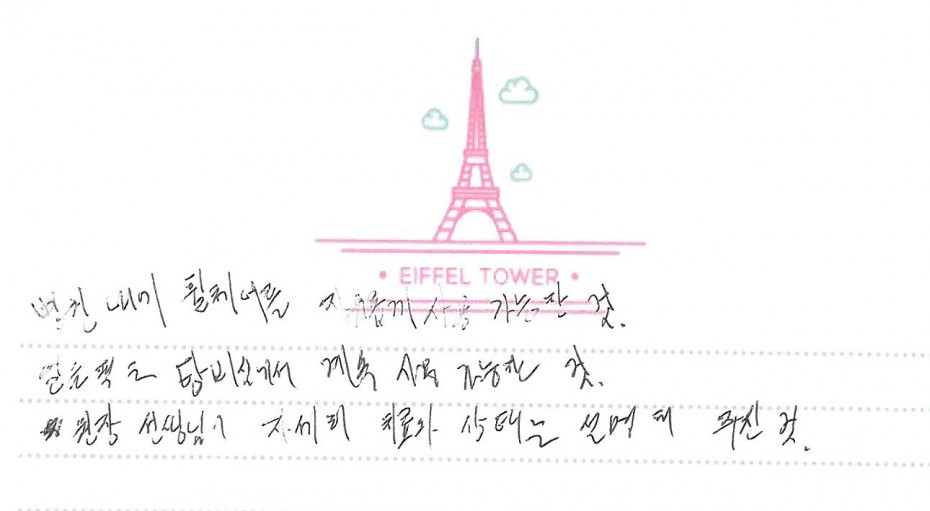 • EIFFEL TOWER •
병원 내에 휠체어를 자유롭게 사용 가능한 것.
얼음팩도 탕비실에서 계속 사용 가능한 것.
원장 선생님이 자세히 치료와 상태를 설명해 주신 것.